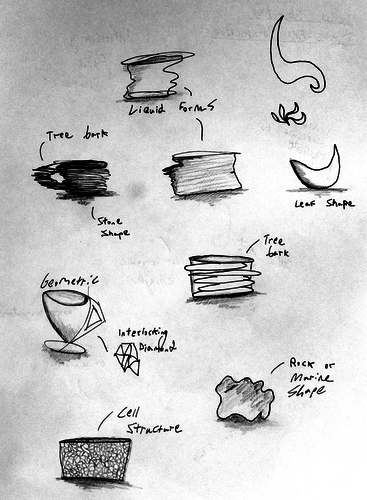 Liquid Forms
Tree bark
Stone
Shape
Leaf Shape
Tree
bark
Geometric
Interlocking
Diamond
Rock or
Marine
Shape
Cell
Structure